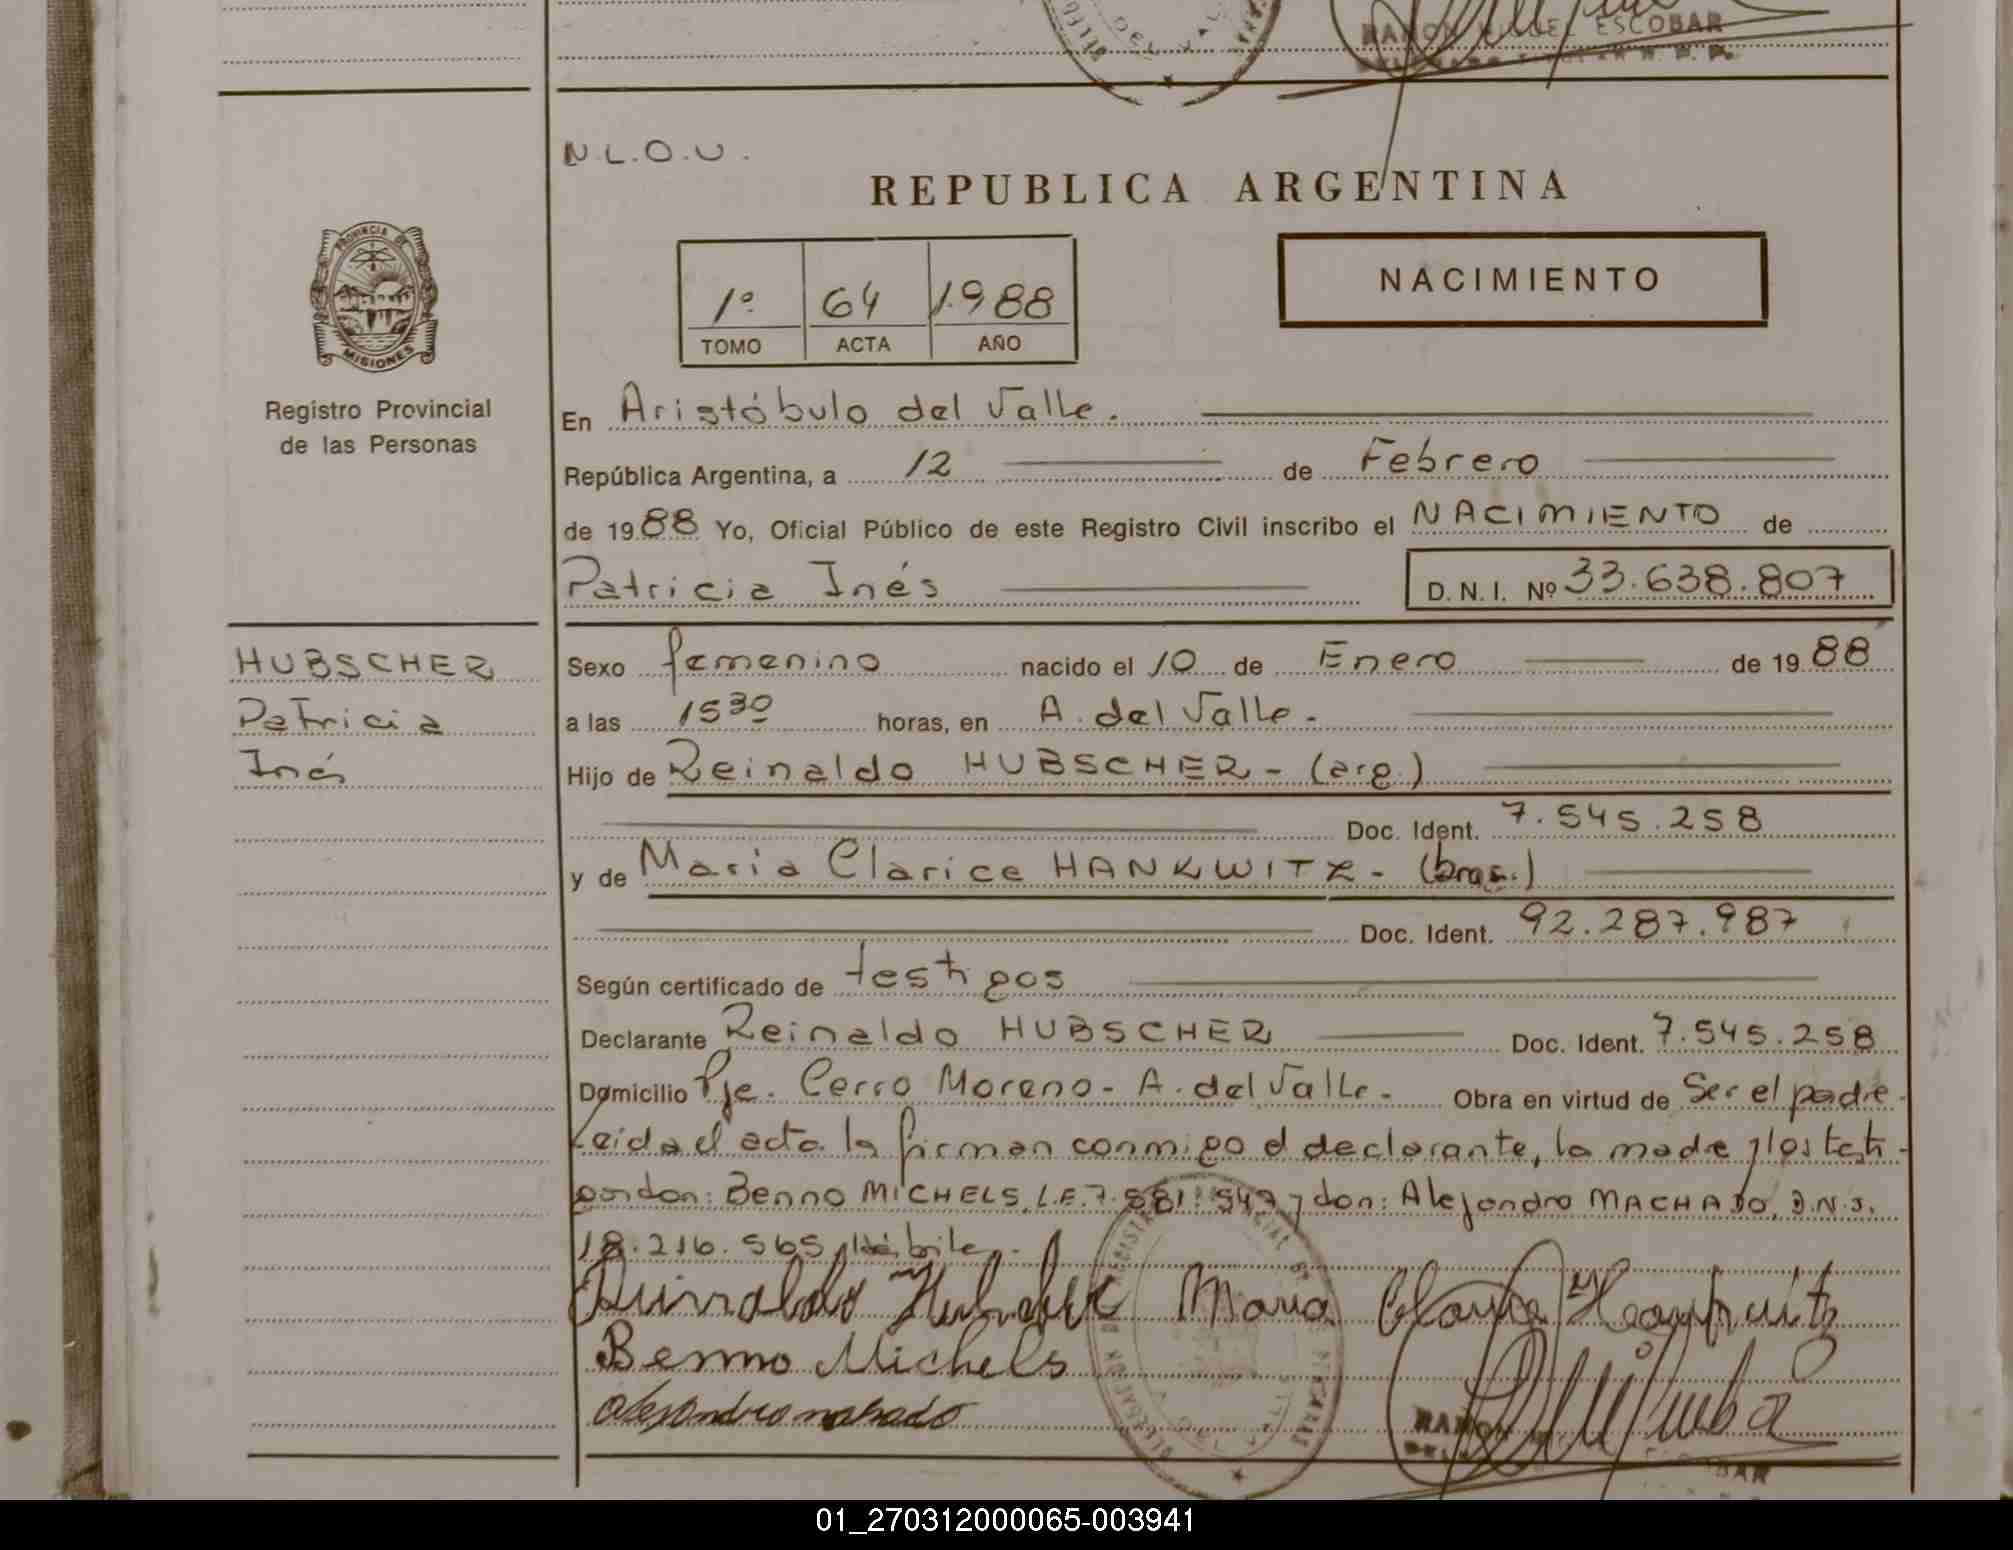 RAMON MIGUEL ESCOBAR
N.L.O.U.
REPUBLICA ARGENTINA
PROVINCIA DE
MISIONES
1º 64 1.988
TOMO ACTA AÑO
NACIMIENTO
Registro Provincial
de las Personas
En Aristóbulo del Valle.
República Argentina, a 12 de Febrero
de 1988 Yo, Oficial Público de este Registro Civil inscribo el NACIMIENTO de
Patricia Inés D.N.I. Nº 33.638.807
HUBSCHER
Patricia
Inés
Sexo femenino nacido el 10 de Enero de 1988
a las 15 30 horas, en A. del Valle.
Hijo de Reinaldo HUBSCHER - (arg.)
Doc. Ident. 7.545.258
y de Maria Clarice HANKWITZ - (bras.)
Doc. Ident. 92.287.987
Según certificado de testigos
Declarante Reinaldo HUBSCHER Doc. Ident. 7.545.258
Domicilio Pje. Cerro Moreno - A. del Valle. Obra en virtud de Ser el padre.
Leida el acta la firman conmigo el declarante, la madre y los testi-
gos don: Benno MICHELS, L.E. 7.881.547 y don: Alejandro MACHADO, D.N.I.
18.216.565, Hábiles.
Benno Michels
RAMON
01_270312000065-003941